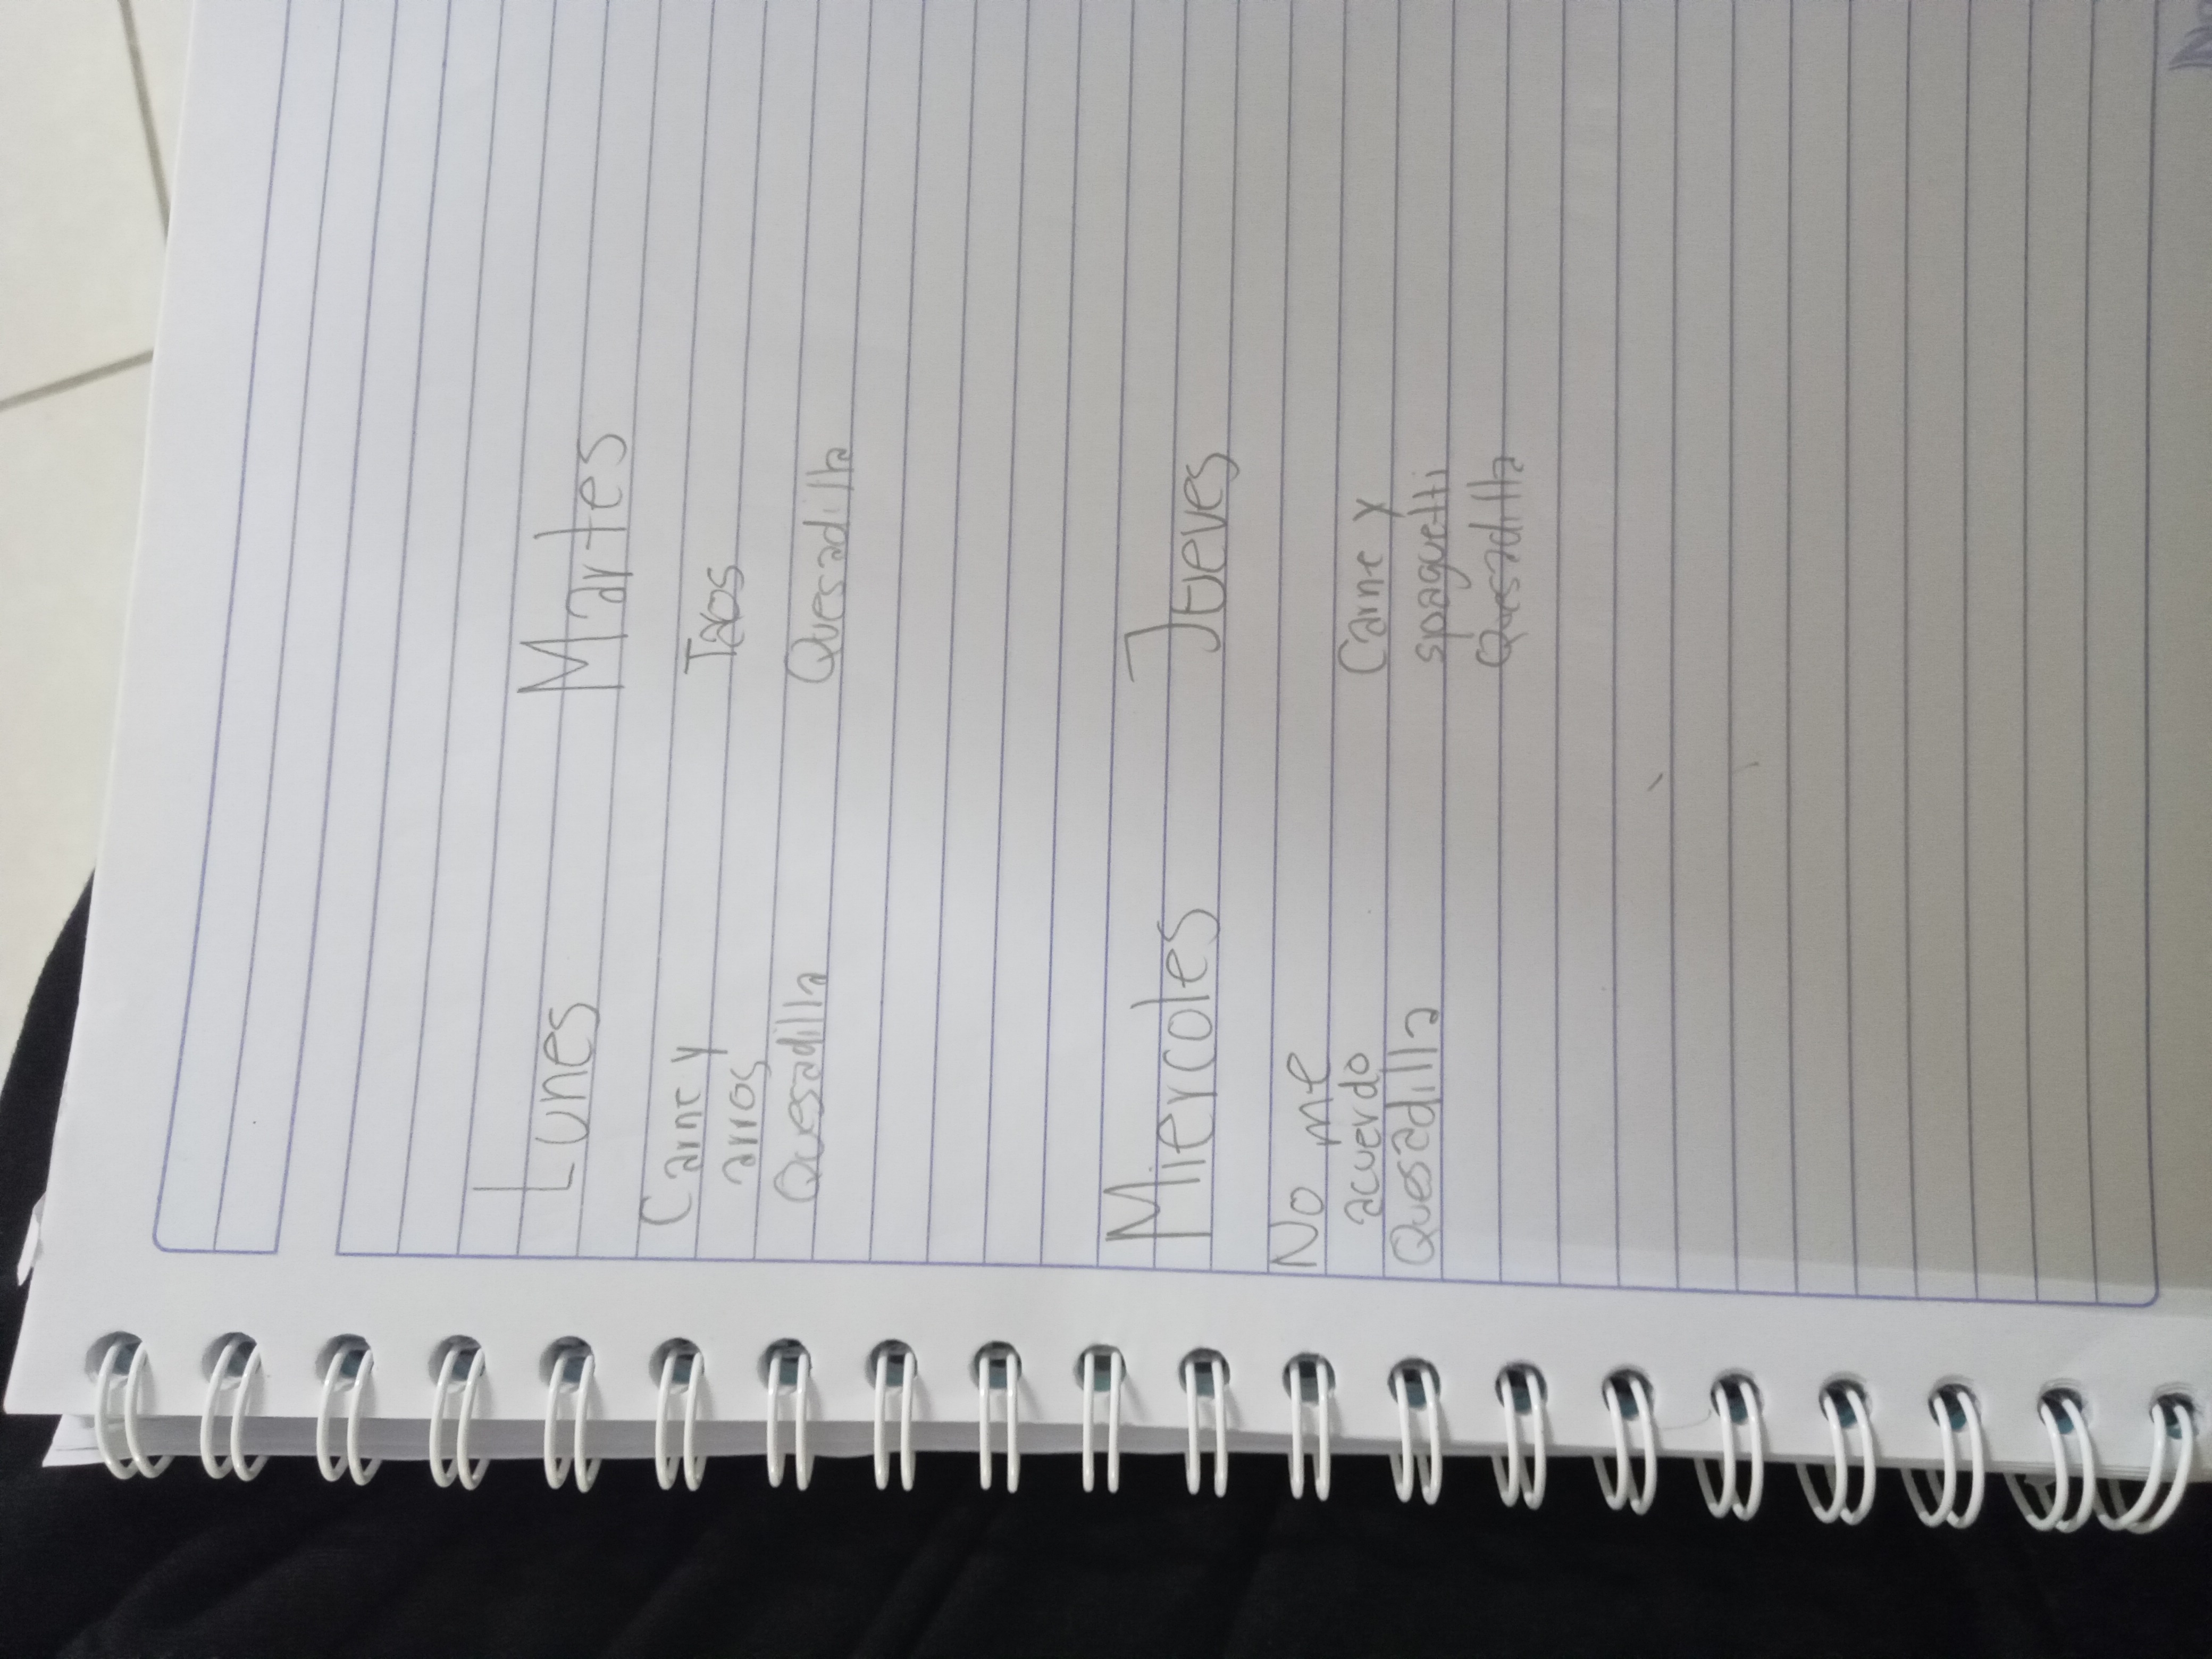 Lunes Martes
Carne y Tacos
arros
Quesadilla Quesadilla
Miercoles Jueves
No me Carne y
acuerdo spaguetti
Quesadilla Quesadilla